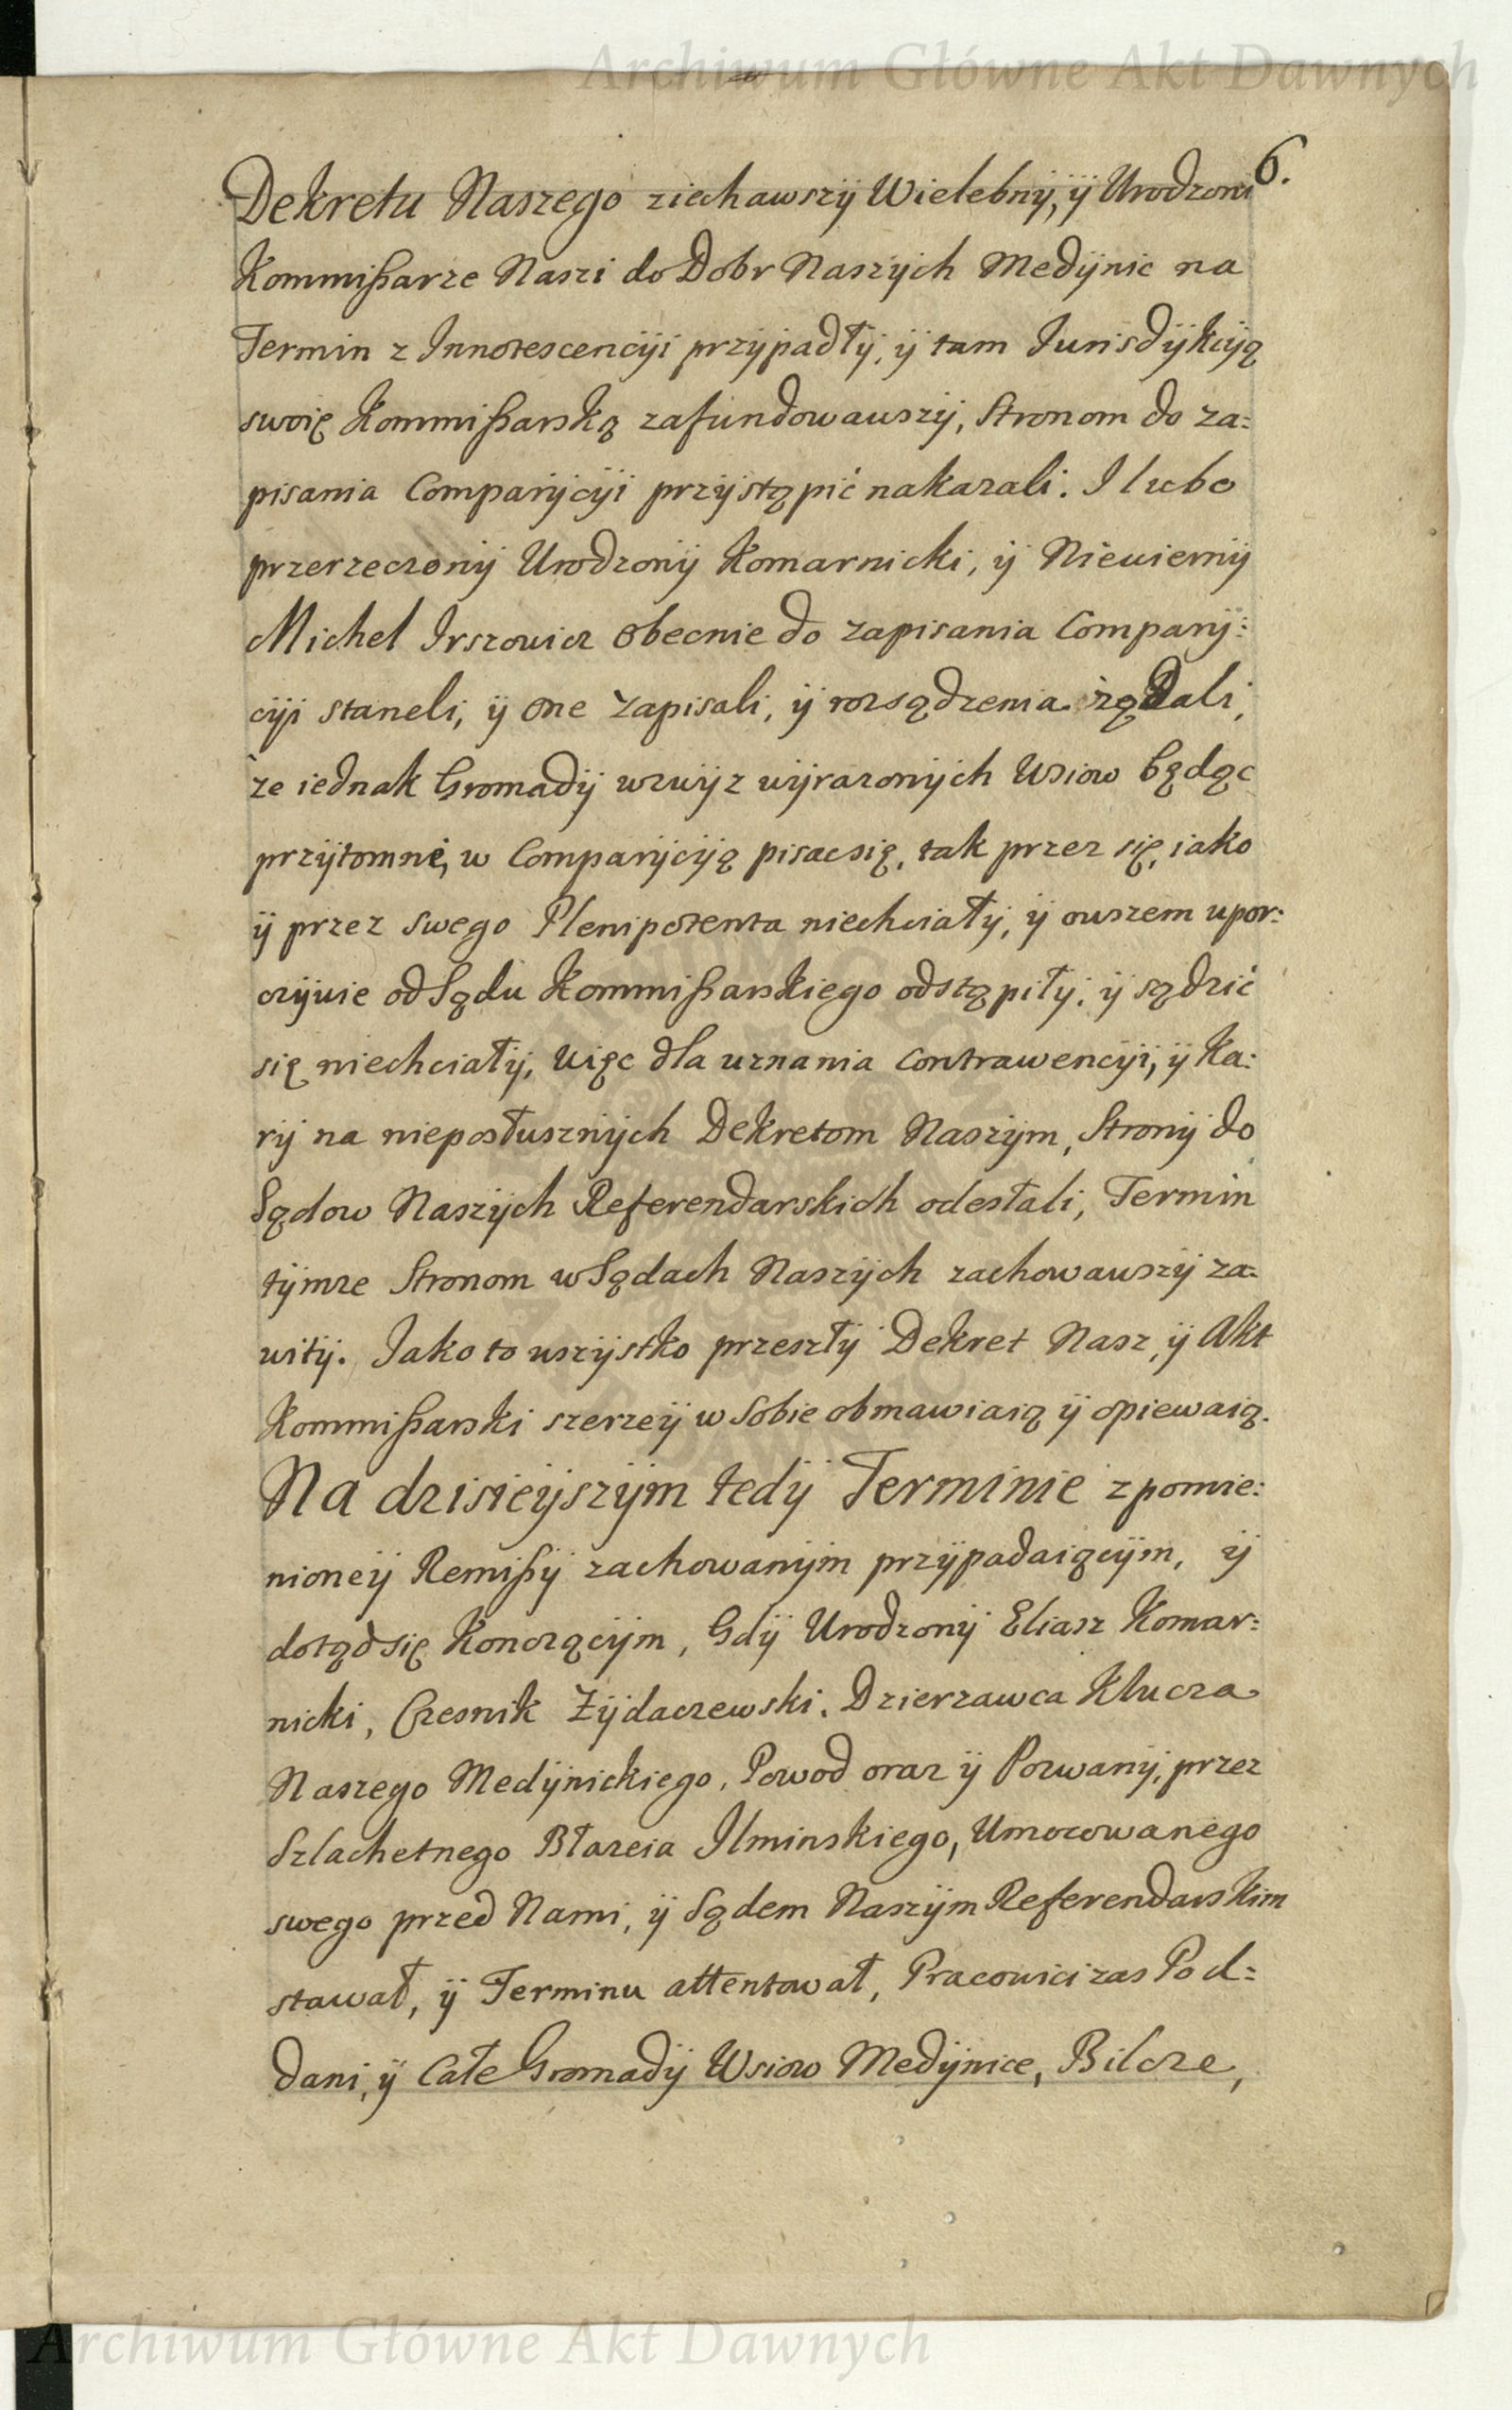 Archiwum Główne Akt Dawnych
6.
Dekretu Naszego ziechawszÿ Wielebnÿ, ÿ Urodzoni
Kommißarze Naszi do Dobr Naszÿch Medÿnic na
Termin z Innotescencÿi przÿpadłÿ, ÿ tam Iurisdÿkcÿą
swoię Kommißarską zafundowawszÿ, Stronom do za:
pisania Comparÿcÿi przÿstąpić nakazali. I lubo
przerzeczonÿ Urodzonÿ Komarnicki, ÿ Niewiernÿ
Michel Irszowicz obecnie do zapisania Comparÿ:
cÿi staneli, ÿ one zapisali, ÿ rozsądzenia żądali,
że iednak Gromadÿ wzwÿz wÿrazonÿch Wsiow będąc
przÿtomne, w Comparÿcÿą pisac się, tak przez się, iako
ÿ przez swego Plenipotenta niechciałÿ, ÿ owszem upor:
czÿwie od Sądu Kommißarskiego odstąpiłÿ, ÿ sądzić
się niechciałÿ, więc dla uznania Contrawencÿi, ÿ Ka:
rÿ na nieposłusznÿch Dekretom Naszÿm, Stronÿ do
Sądow Naszÿch Referendarskich odesłali, Termin
tÿmze Stronom w Sądach Naszÿch zachowawszÿ za:
witÿ. Iako to wszÿstko przeszłÿ Dekret Nasz, ÿ Akt
Kommißarski szerzeÿ w Sobie obmawiaią ÿ opiewaią.
Na dzisieÿszÿm tedÿ Terminie z pomie:
nioneÿ Remißÿ zachowanÿm przÿpadaiącÿm, ÿ
dotąd się Konczącÿm, Gdÿ Urodzonÿ Eliasz Komar:
nicki, Czesnik Zÿdaczewski, Dzierzawca Klucza
Naszego Medÿnickiego, Powod oraz ÿ Pozwanÿ, przez
Szlachetnego Błazeia Ilminskiego, Umocowanego
swego przed Nami, ÿ Sądem Naszÿm Referendarskim
stawał, ÿ Terminu attentował, Pracowici zas Pod:
dani, ÿ Całe Gromadÿ Wsiow Medÿnice, Bilcze,
Archiwum Główne Akt Dawnych